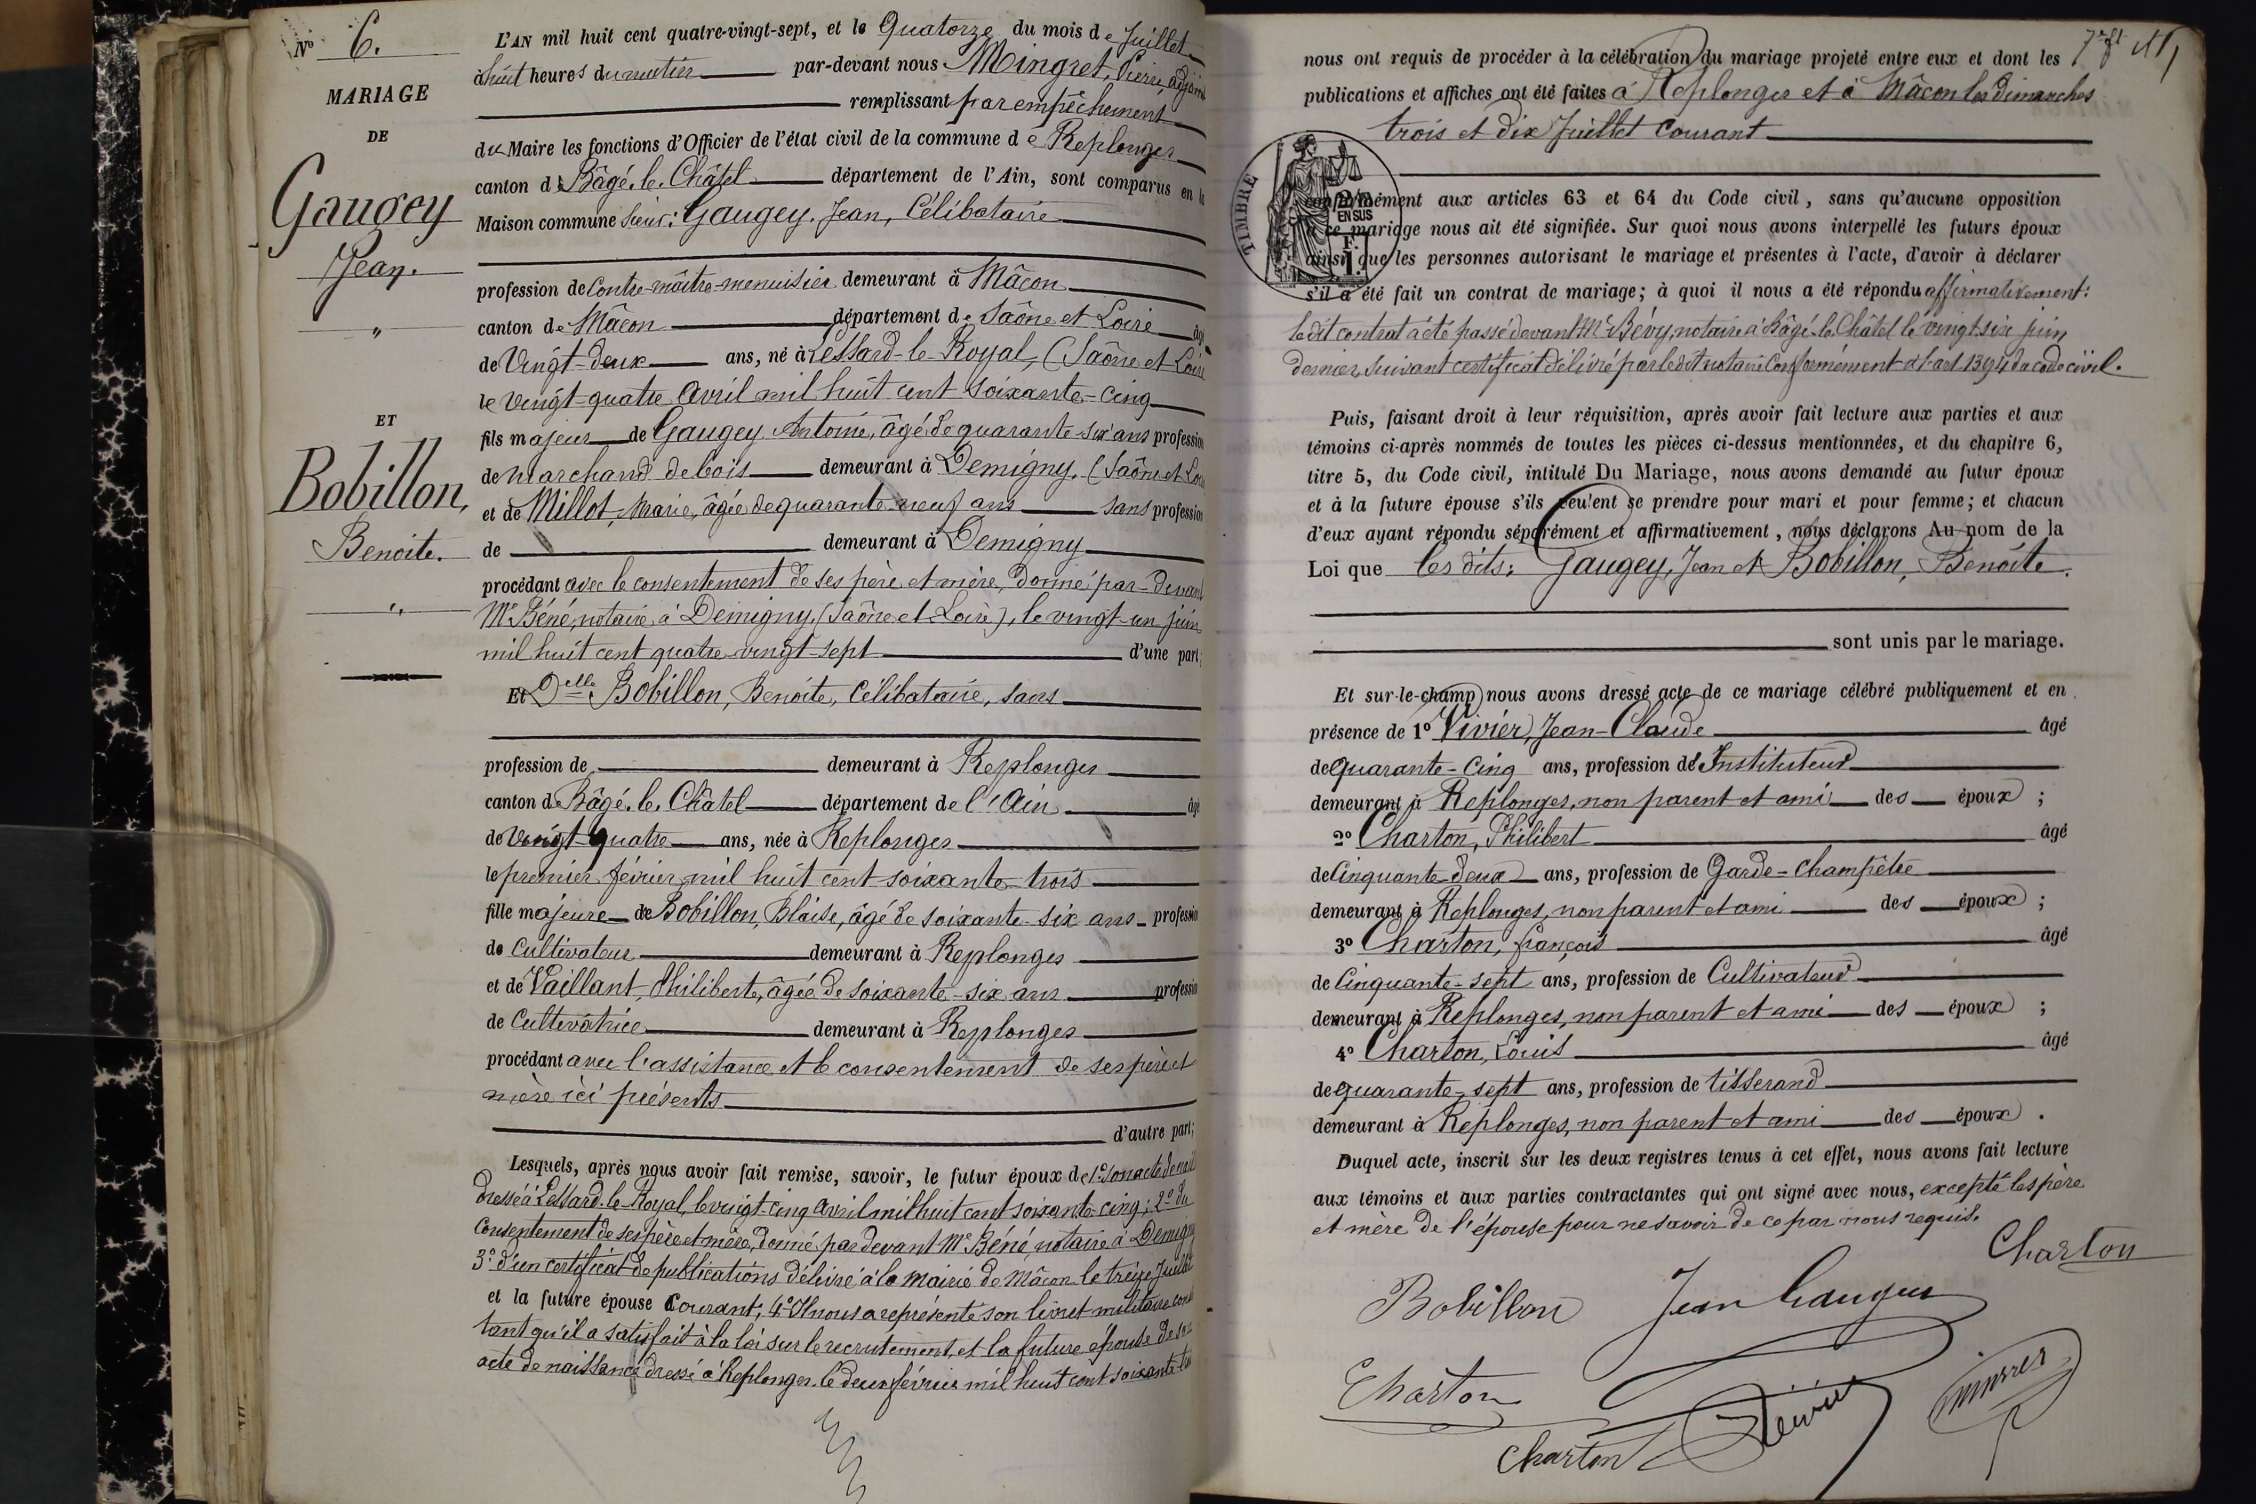 N° 6.
MARIAGE
DE
Gaugey
Jean.
"
ET
Bobillon,
Benoite.
"
L'AN mil huit cent quatre-vingt-sept, et le Quatorze du mois de Juillet
à huit heures du matin par-devant nous Mingret, Pierre, adjoint
remplissant par empêchement
du Maire les fonctions d'Officier de l'état civil de la commune de Replonges
canton de Bâgé-le-Châtel département de l'Ain, sont comparus en la
Maison commune sieur: Gaugey, Jean, Célibataire
profession de Contre-maître-menuisier demeurant à Mâcon
canton de Mâcon département de Saône et Loire âgé
de Vingt-deux ans, né à Lessard-le-Royal, (Saône et Loire
le vingt-quatre avril mil huit cent soixante-cinq
fils majeur de Gaugey Antoine, âgé de quarante-six ans profession
de marchand de bois demeurant à Demigny, (Saône et Loire
et de Millot, Marie, âgée de quarante-neuf ans sans profession
de demeurant à Demigny
procédant avec le consentement de ses père et mère, donné par-devant
Me Béné, notaire à Demigny, (Saône et Loire), le vingt-un juin
mil huit cent quatre-vingt-sept d'une part;
Et Delle Bobillon, Benoite, Célibataire, sans
profession de demeurant à Replonges
canton de Bâgé-le-Châtel département de l'Ain âgé
de vingt-quatre ans, née à Replonges
le premier février mil huit cent soixante-trois
fille majeure de Bobillon, Blaise, âgé de soixante-six ans profession
de Cultivateur demeurant à Replonges
et de Vaillant, Philiberte, âgée de soixante-six ans profession
de Cultivatrice demeurant à Replonges
procédant avec l'assistance et le consentement de ses père et
mère ici présents
d'autre part;
Lesquels, après nous avoir fait remise, savoir, le futur époux de 1° son acte de nais
dressé à Lessard-le-Royal, le vingt-cinq avril mil huit cent soixante-cinq; 2° du
consentement de ses père et mère, donné par devant Me Béné, notaire à Demigny
3° d'un certificat de publications délivré à la mairie de Mâcon le treize Juillet
et la future épouse Courant; 4° Il nous a représenté son livret militaire cons
tant qu'il a satisfait à la loi sur le recrutement, et la future épouse de son
acte de naissance dressé à Replonges le deux février mil huit cent soixante-trois
nous ont requis de procéder à la célébration du mariage projeté entre eux et dont les
publications et affiches ont été faites à Replonges et à Mâcon les dimanches
trois et dix Juillet courant
TIMBRE
2/10
EN SUS
F.
1.
conformément aux articles 63 et 64 du Code civil, sans qu'aucune opposition
à ce mariage nous ait été signifiée. Sur quoi nous avons interpellé les futurs époux
ainsi que les personnes autorisant le mariage et présentes à l'acte, d'avoir à déclarer
s'il a été fait un contrat de mariage; à quoi il nous a été répondu affirmativement:
le dit contrat a été passé devant Me Bévy, notaire à Bâgé-le-Châtel le vingt-six juin
dernier, suivant certificat délivré par le dit notaire conformément à l'art 1394 du code civil.
Puis, faisant droit à leur réquisition, après avoir fait lecture aux parties et aux
témoins ci-après nommés de toutes les pièces ci-dessus mentionnées, et du chapitre 6,
titre 5, du Code civil, intitulé Du Mariage, nous avons demandé au futur époux
et à la future épouse s'ils veulent se prendre pour mari et pour femme; et chacun
d'eux ayant répondu séparément et affirmativement, nous déclarons Au nom de la
Loi que les dits: Gaugey, Jean et Bobillon, Benoite.
sont unis par le mariage.
Et sur-le-champ nous avons dressé acte de ce mariage célébré publiquement et en
présence de 1° Vivier, Jean-Claude âgé
de Quarante-cinq ans, profession de Instituteur
demeurant à Replonges, non parent et ami des époux ;
2° Charton, Philibert âgé
de Cinquante-deux ans, profession de Garde-champêtre
demeurant à Replonges, non parent et ami des époux ;
3° Charton, françois âgé
de Cinquante-sept ans, profession de Cultivateur
demeurant à Replonges, non parent et ami des époux ;
4° Charton, Louis âgé
de quarante-sept ans, profession de tisserand
demeurant à Replonges, non parent et ami des époux .
Duquel acte, inscrit sur les deux registres tenus à cet effet, nous avons fait lecture
aux témoins et aux parties contractantes qui ont signé avec nous, excepté les père
et mère de l'épouse pour ne savoir de ce par nous requis.
Charton
Bobillon Jean Gaugey
Charton
Charton Vivier